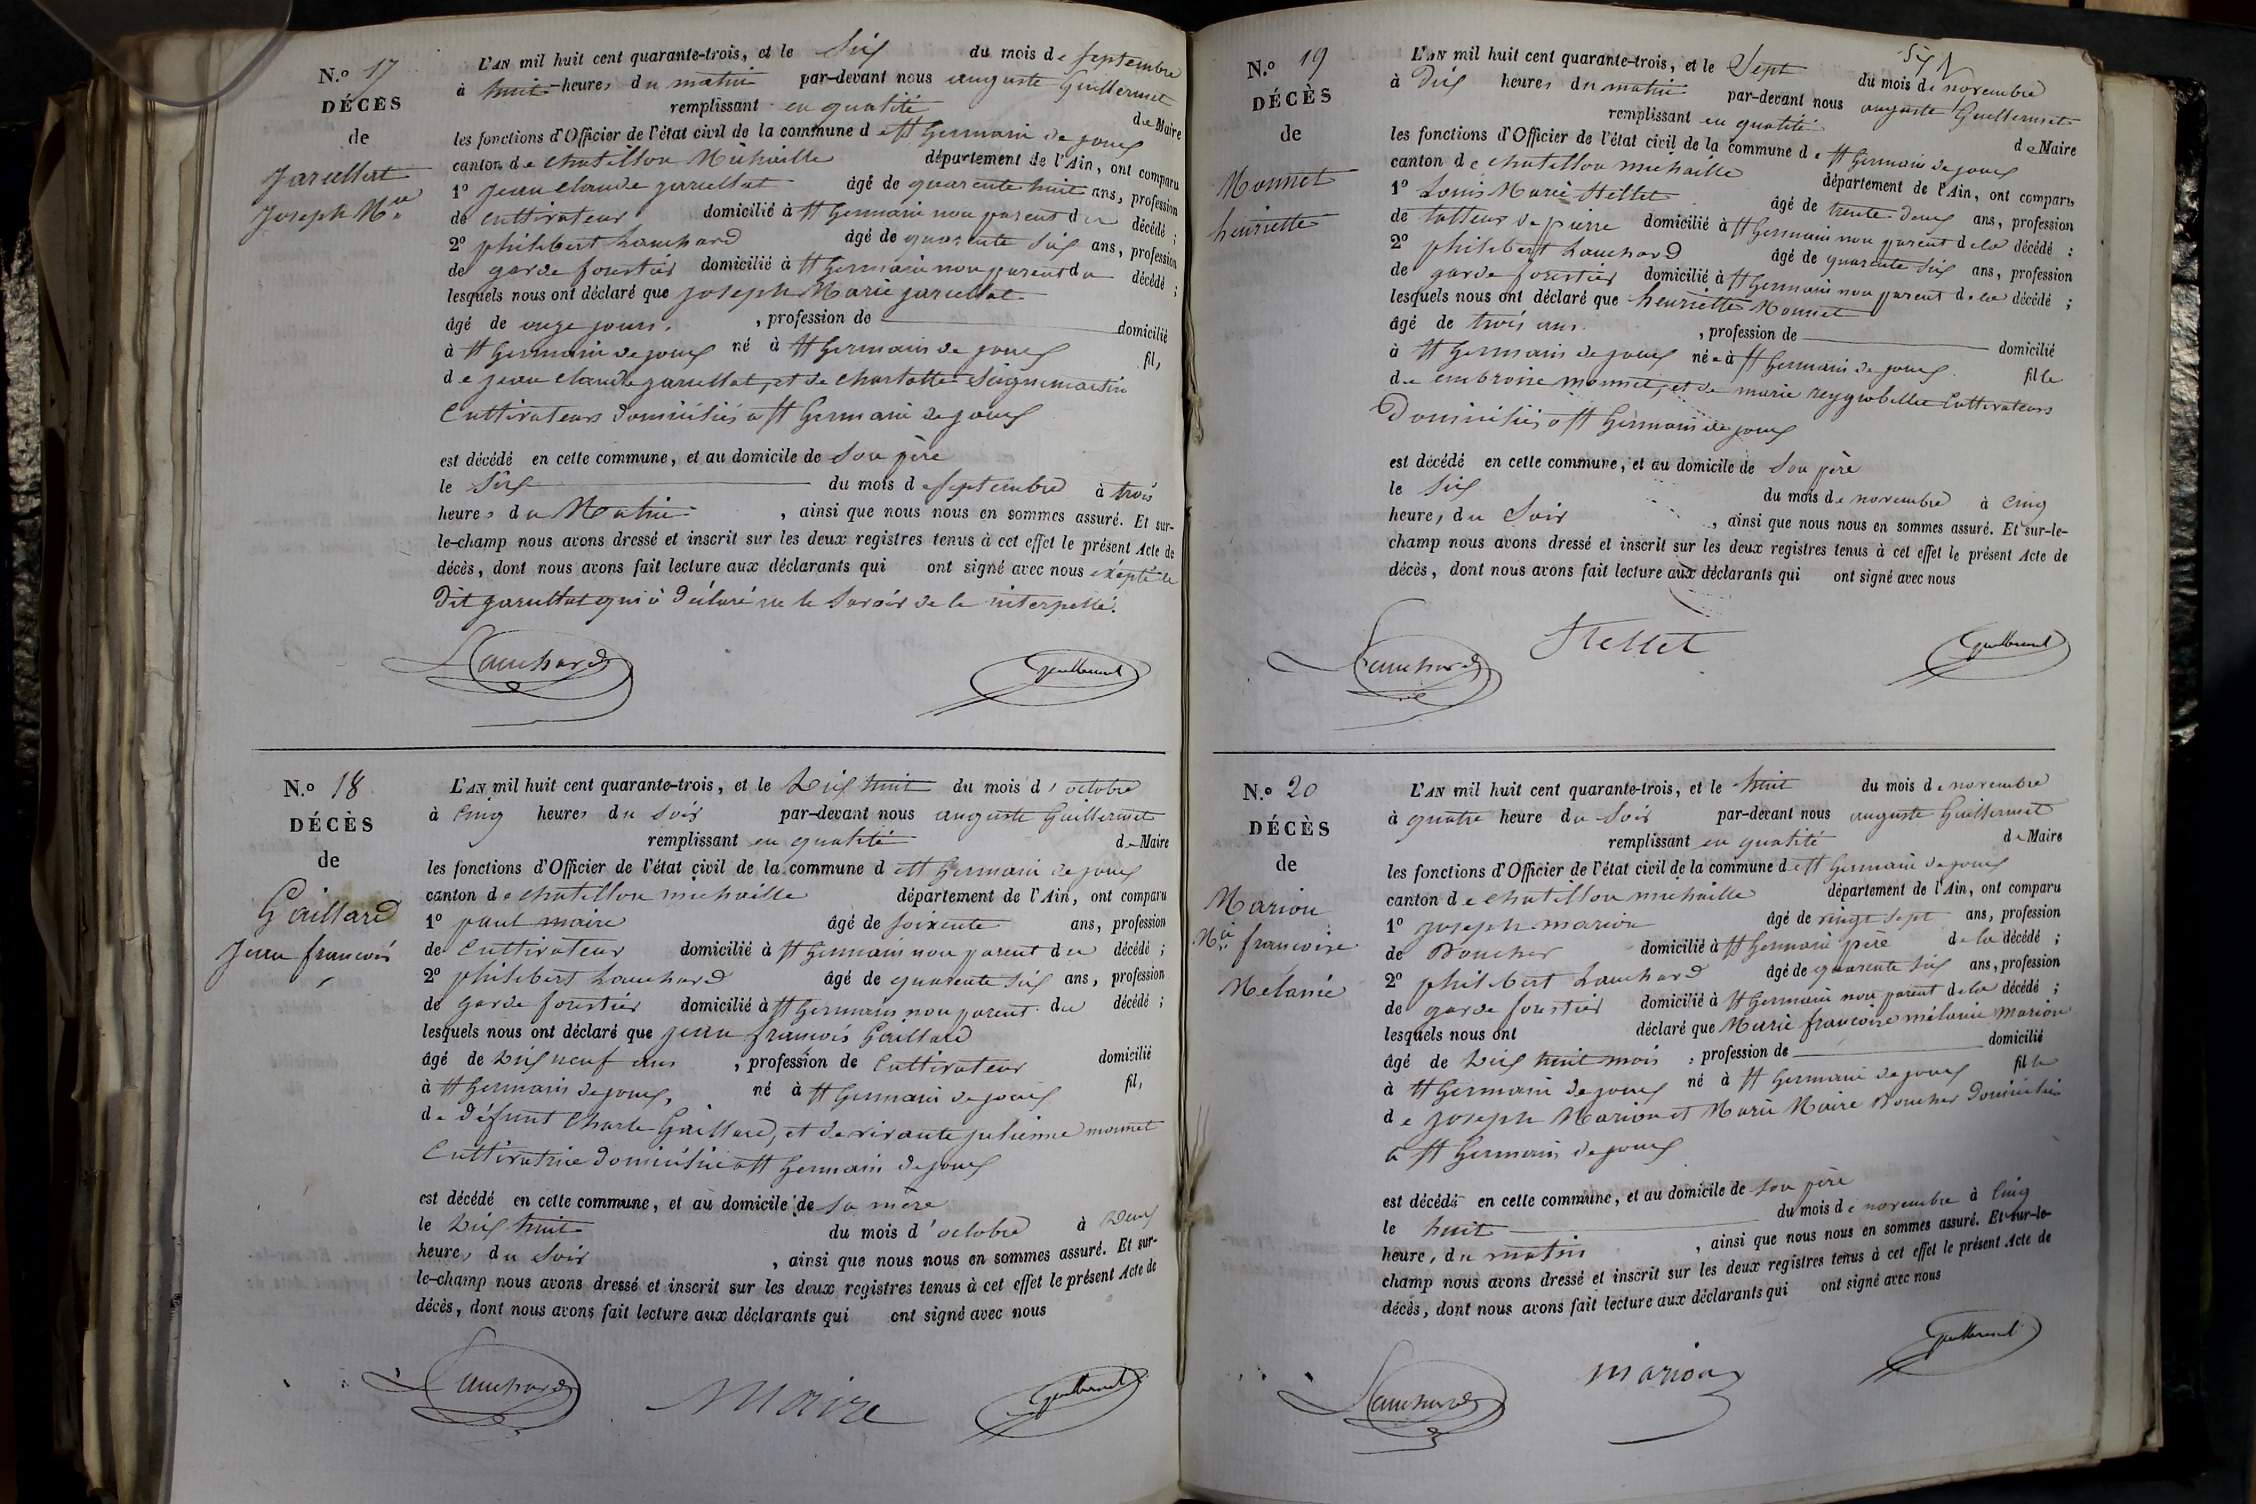 N.º 17
DÉCÈS
de
Jarcellat
Joseph Mie
L'AN mil huit cent quarante-trois, et le Six du mois de septembre
à huit heures du matin par-devant nous auguste Guillermet
remplissant en qualité de Maire
les fonctions d'Officier de l'état civil de la commune de St Germain de joux
canton de chatillon Michaille département de l'Ain, ont comparu
1º jean Claude jarcellat âgé de quarente huit ans, profession
de cultivateur domicilié à St Germain non parent du décédé ;
2º philibert Lanchard âgé de quarente Six ans, profession
de garde forestier domicilié à St Germain non parent du décédé ;
lesquels nous ont déclaré que joseph Marie jarcellat
âgé de onze jours. , profession de domicilié
à St Germain de joux né à St Germain de joux fils
de jean Claude jarcellat, et de charlotte Seignemartin
Cultivateurs domiciliés a St Germain de joux
est décédé en cette commune, et au domicile de Son père
le Six du mois de septembre à trois
heures du Matin , ainsi que nous nous en sommes assuré. Et sur-
le-champ nous avons dressé et inscrit sur les deux registres tenus à cet effet le présent Acte de
décès, dont nous avons fait lecture aux déclarants qui ont signé avec nous excepté le
Dit jarcellat qui à Déclaré ne le Savoir de le interpellé.
Lanchard
Guillermet
N.º 18
DÉCÈS
de
Gaillard
Jean francois
L'AN mil huit cent quarante-trois, et le Dix huit du mois d'octobre
à Cinq heures du Soir par-devant nous auguste Guillermet
remplissant en qualité de Maire
les fonctions d'Officier de l'état civil de la commune de St Germain de joux
canton de chatillon michaille département de l'Ain, ont comparu
1º paul maire âgé de soixente ans, profession
de Cultivateur domicilié à St Germain non parent du décédé ;
2º philibert Lanchard âgé de quarente Six ans, profession
de garde forestier domicilié à St Germain non parent du décédé ;
lesquels nous ont déclaré que jean francois Gaillard
âgé de Dix neuf ans , profession de Cultivateur domicilié
à St Germain de joux, né à St Germain de joux fils
de défunt Charle Gaillard, et de vivante julienne monnet
Cultivatrice domiciliée a St Germain de joux
est décédé en cette commune, et au domicile de Sa mère
le Dix huit du mois d'octobre à Deux
heures du Soir , ainsi que nous nous en sommes assuré. Et sur-
le-champ nous avons dressé et inscrit sur les deux registres tenus à cet effet le présent Acte de
décès, dont nous avons fait lecture aux déclarants qui ont signé avec nous
Lanchard
Maire
Guillermet
N.º 19
DÉCÈS
de
Monnet
henriette
L'AN mil huit cent quarante-trois, et le Sept du mois de novembre
à Dix heures du matin par-devant nous auguste Guillermet
remplissant en qualité de Maire
les fonctions d'Officier de l'état civil de la commune de St Germain de joux
canton de chatillon michaille département de l'Ain, ont comparu
1º Louis Marie Hellet âgé de trente Deux ans, profession
de tailleur de pierre domicilié à St Germain non parent de la décédé :
2º philibert Lanchard âgé de quarente Six ans, profession
de garde forestier domicilié à St Germain non parent de la décédé ;
lesquels nous ont déclaré que henriette Monnet
âgé de trois ans , profession de domicilié
à St Germain de joux née à St Germain de joux fille
de embroise monnet, et de marie Cultivateurs
Domiciliés a St Germain de joux
est décédé en cette commune, et au domicile de Son père
le Six du mois de novembre à Cinq
heures du Soir , ainsi que nous nous en sommes assuré. Et sur-le-
champ nous avons dressé et inscrit sur les deux registres tenus à cet effet le présent Acte de
décès, dont nous avons fait lecture aux déclarants qui ont signé avec nous
Lanchard
Hellet
Guillermet
N.º 20
DÉCÈS
de
Marion
Mie francoise
Melanie
L'AN mil huit cent quarante-trois, et le huit du mois de novembre
à quatre heure du Soir par-devant nous auguste Guillermet
remplissant en qualité de Maire
les fonctions d'Officier de l'état civil de la commune de St Germain de joux
canton de chatillon michaille département de l'Ain, ont comparu
1º joseph marion âgé de vingt Sept ans, profession
de Boucher domicilié à St Germain père de la décédé ;
2º philibert Lanchard âgé de quarente Six ans, profession
de garde forestier domicilié à St Germain non parent de la décédé ;
lesquels nous ont déclaré que Marie francoise mélanie marion
âgé de Dix huit mois , profession de domicilié
à St Germain de joux né à St Germain de joux fille
de joseph Marion et Marie Maire Boucher Domiciliés
a St Germain de joux
est décédé en cette commune, et au domicile de Son père
le huit du mois de novembre à Cinq
heures du matin , ainsi que nous nous en sommes assuré. Et sur-le-
champ nous avons dressé et inscrit sur les deux registres tenus à cet effet le présent Acte de
décès, dont nous avons fait lecture aux déclarants qui ont signé avec nous
Lanchard
marion
Guillermet